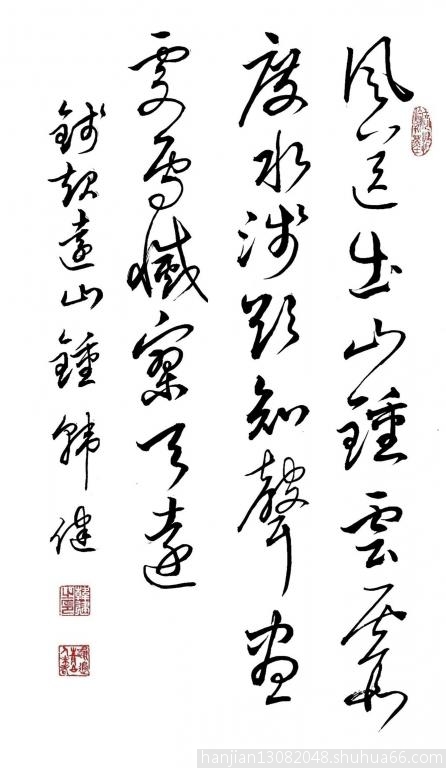 風送出山鍾雲霞
度水淺欲知聲盡
處鳥滅寥天遠
錢起遠山鍾韓健
hanjian13082048.shuhua66.com